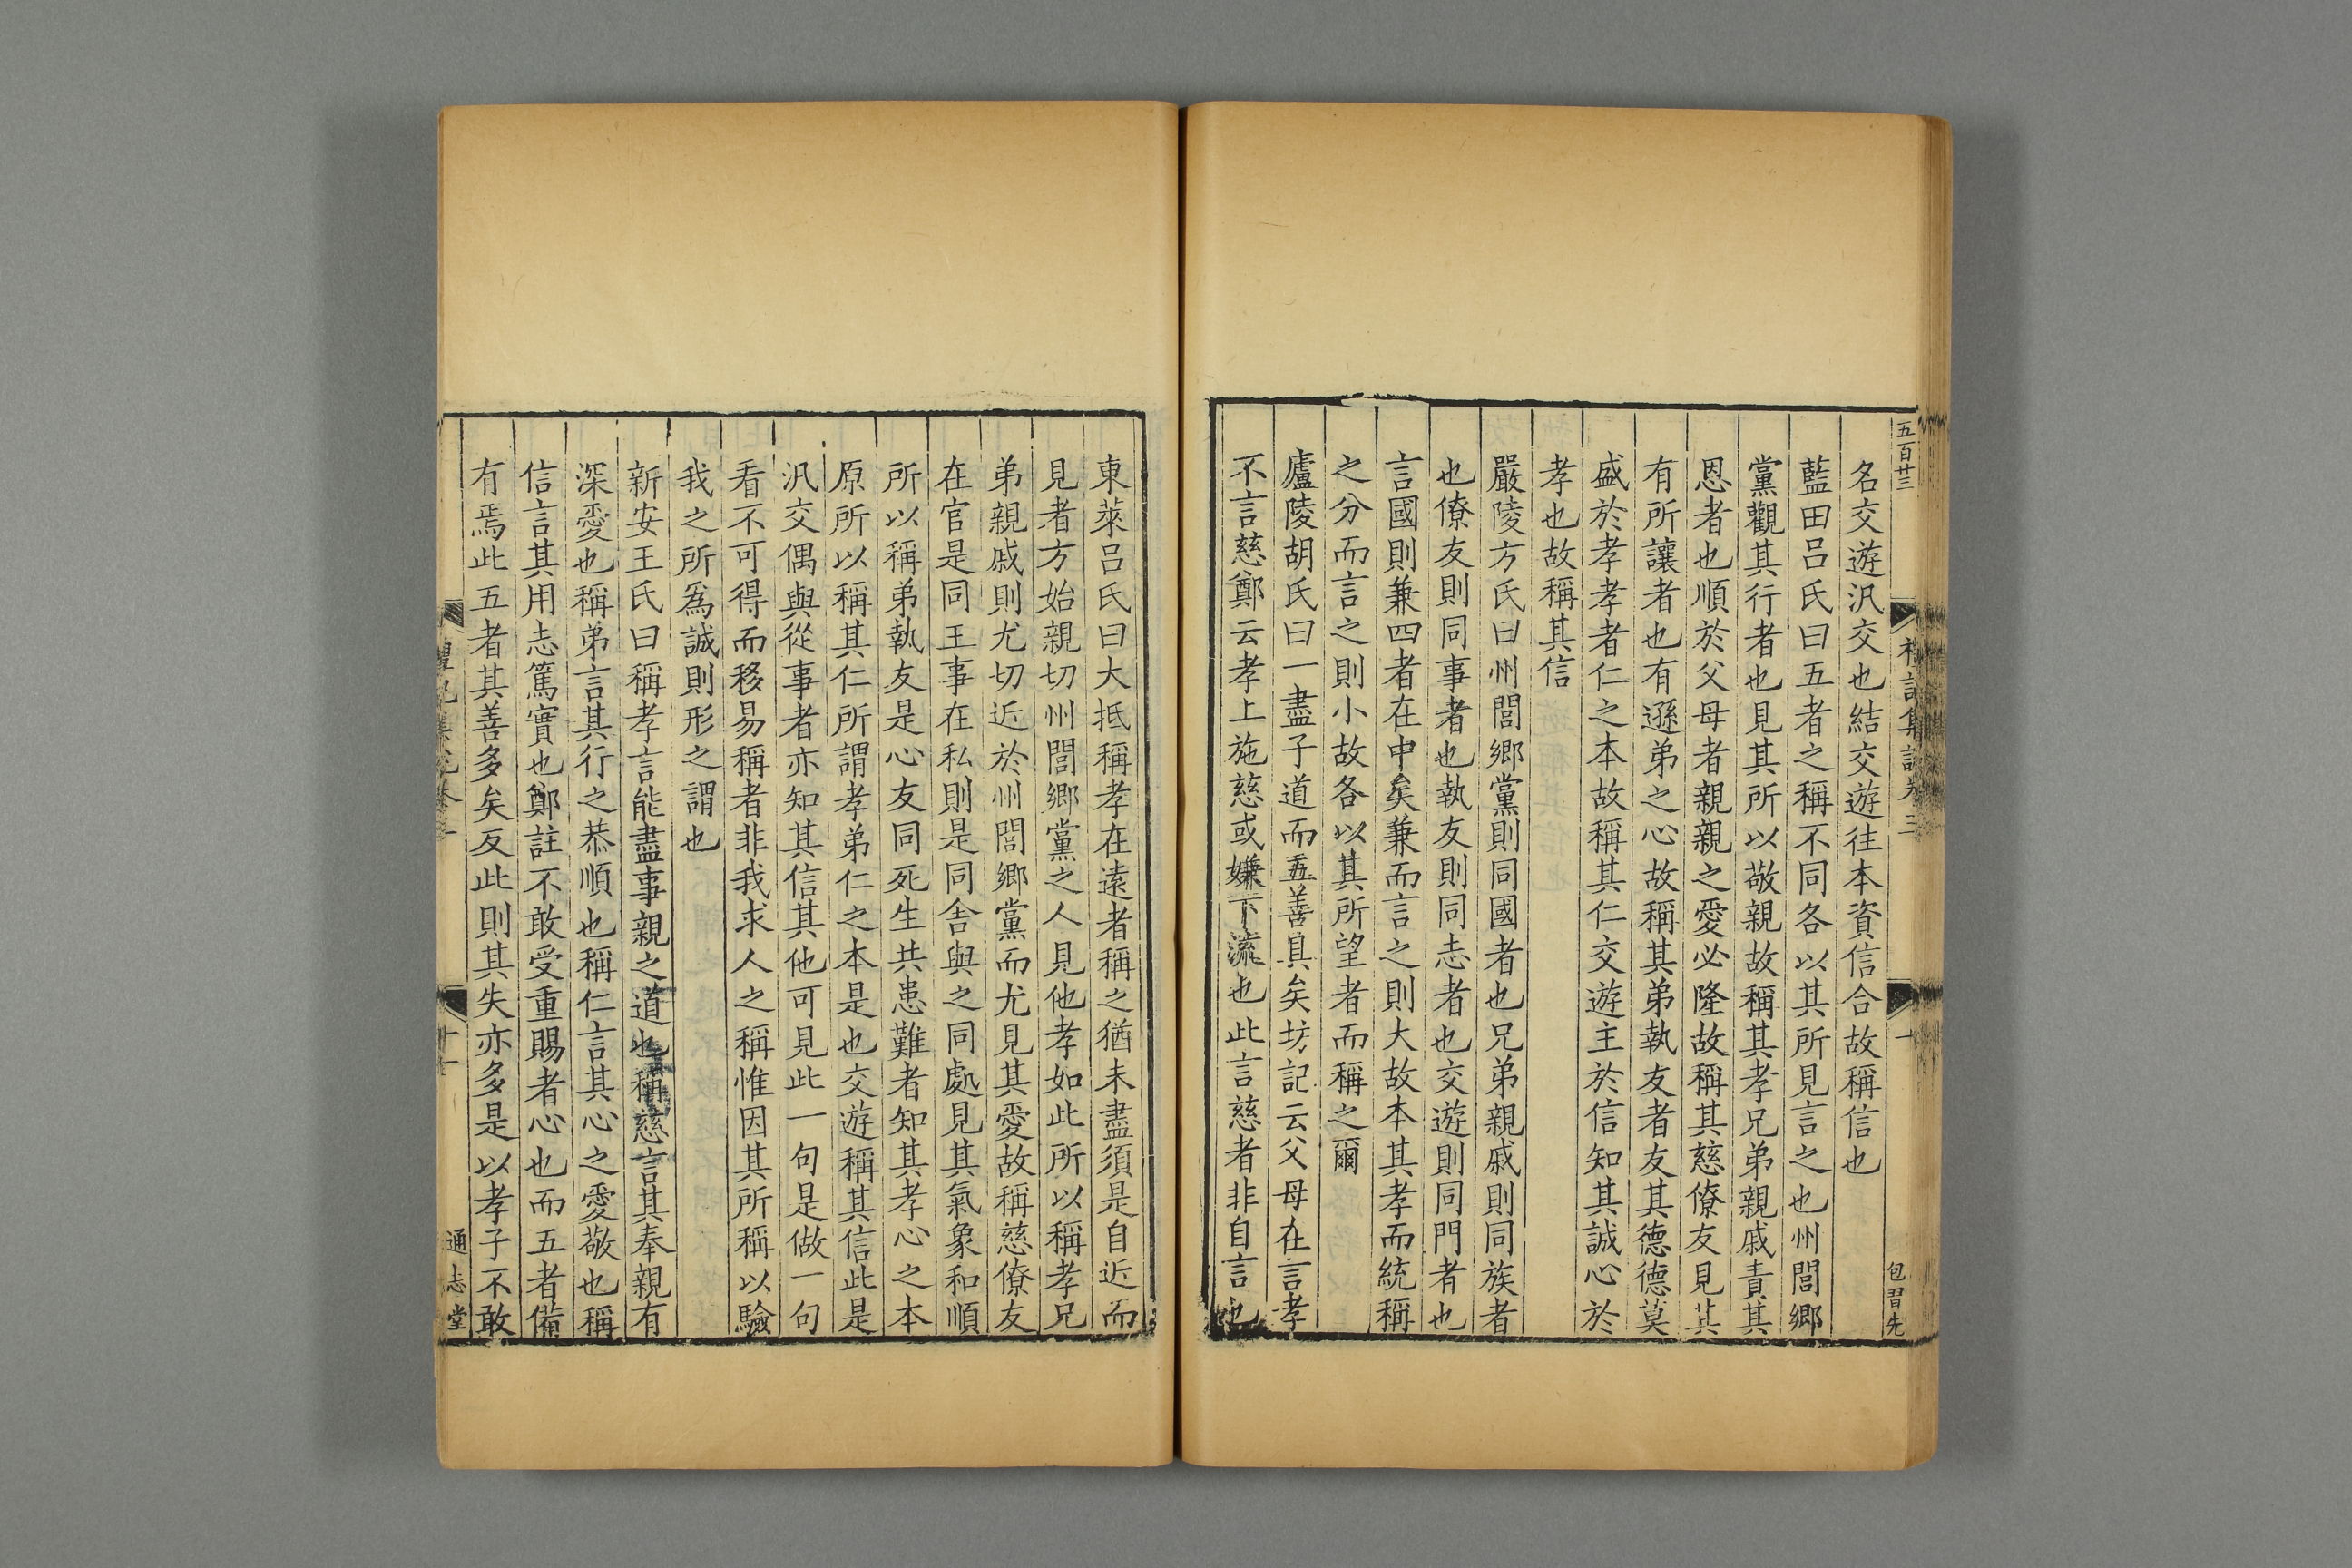 五百廿三
名交遊汎交也結交遊往本資信合故稱信也
藍田呂氏曰五者之稱不同各以其所見言之也州閭鄉
黨觀其行者也見其所以敬親故稱其孝兄弟親戚責其
恩者也順於父母者親親之愛必隆故稱其慈僚友見其
有所讓者也有遜弟之心故稱其弟執友者友其德德莫
盛於孝孝者仁之本故稱其仁交遊主於信知其誠心於
孝也故稱其信
嚴陵方氏曰州閭鄉黨則同國者也兄弟親戚則同族者
也僚友則同事者也執友則同志者也交遊則同門者也
言國則兼四者在中矣兼而言之則大故本其孝而統稱
之分而言之則小故各以其所望者而稱之爾
廬陵胡氏曰一盡子道而五善具矣坊記云父母在言孝
不言慈鄭云孝上施慈或嫌下流也此言慈者非自言也
包習先
東萊呂氏曰大抵稱孝在遠者稱之猶未盡須是自近而
見者方始親切州閭鄉黨之人見他孝如此所以稱孝兄
弟親戚則尤切近於州閭鄉黨而尤見其愛故稱慈僚友
在官是同王事在私則是同舍與之同處見其氣象和順
所以稱弟執友是心友同死生共患難者知其孝心之本
原所以稱其仁所謂孝弟仁之本是也交遊稱其信此是
汎交偶與從事者亦知其信其他可見此一句是做一句
看不可得而移易稱者非我求人之稱惟因其所稱以驗
我之所為誠則形之謂也
新安王氏曰稱孝言能盡事親之道也稱慈言其奉親有
深愛也稱弟言其行之恭順也稱仁言其心之愛敬也稱
信言其用志篤實也鄭註不敢受重賜者心也而五者備
有焉此五者其善多矣反此則其失亦多是以孝子不敢
通志堂